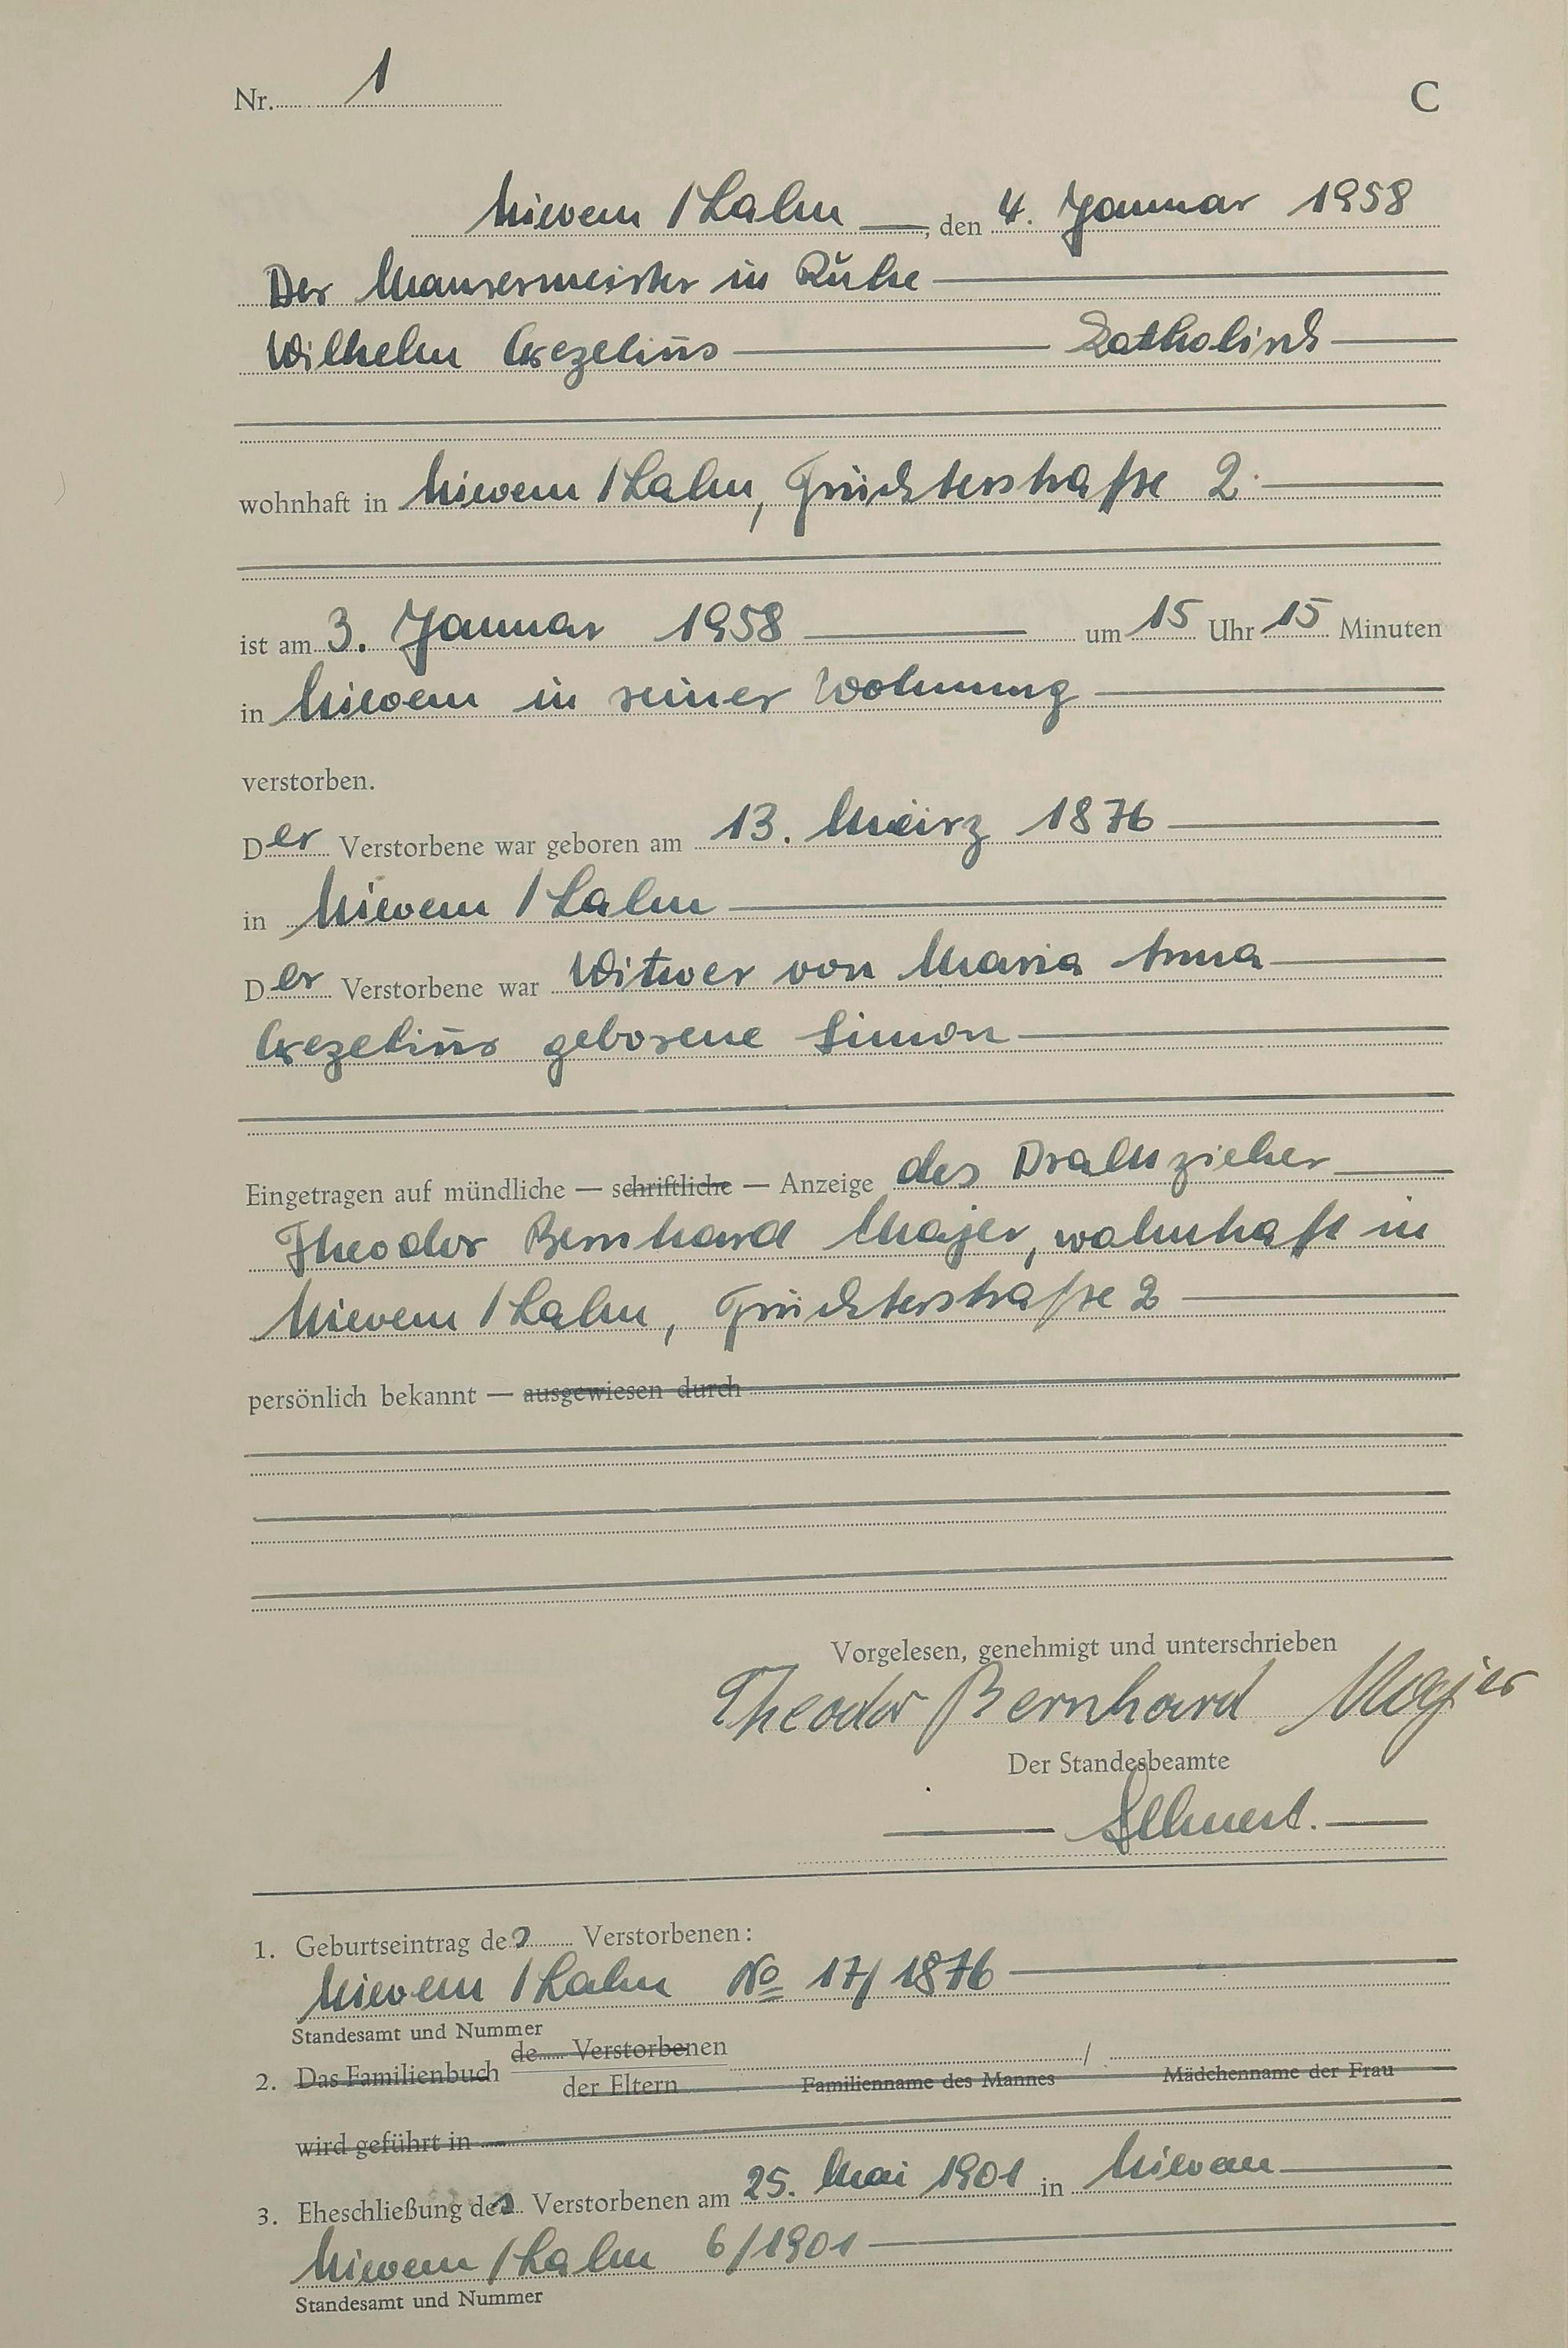 Nr. 1 C
Nievern / Lahn, den 4. Januar 1958
Der Maurermeister in Ruhe
Wilhelm Gezelius katholisch
wohnhaft in Nievern / Lahn, Früchterstraße 2
ist am 3. Januar 1958 um 15 Uhr 15 Minuten
in Nievern in seiner Wohnung
verstorben.
Der Verstorbene war geboren am 13. März 1876
in Nievern / Lahn
Der Verstorbene war Witwer von Maria Anna
Gezelius geborene Simon
Eingetragen auf mündliche — schriftliche — Anzeige des Drahtzieher
Theodor Bernhard Majer, wohnhaft in
Nievern / Lahn, Früchterstraße 2
persönlich bekannt — ausgewiesen durch
Vorgelesen, genehmigt und unterschrieben
Theodor Bernhard Majer
Der Standesbeamte
1. Geburtseintrag des Verstorbenen:
Nievern / Lahn No 17/1876
Standesamt und Nummer
2. Das Familienbuch de Verstorbenen /
der Eltern Familienname des Mannes Mädchenname der Frau
wird geführt in
3. Eheschließung des Verstorbenen am 25. Mai 1901 in Nievern
Nievern / Lahn 6/1901
Standesamt und Nummer